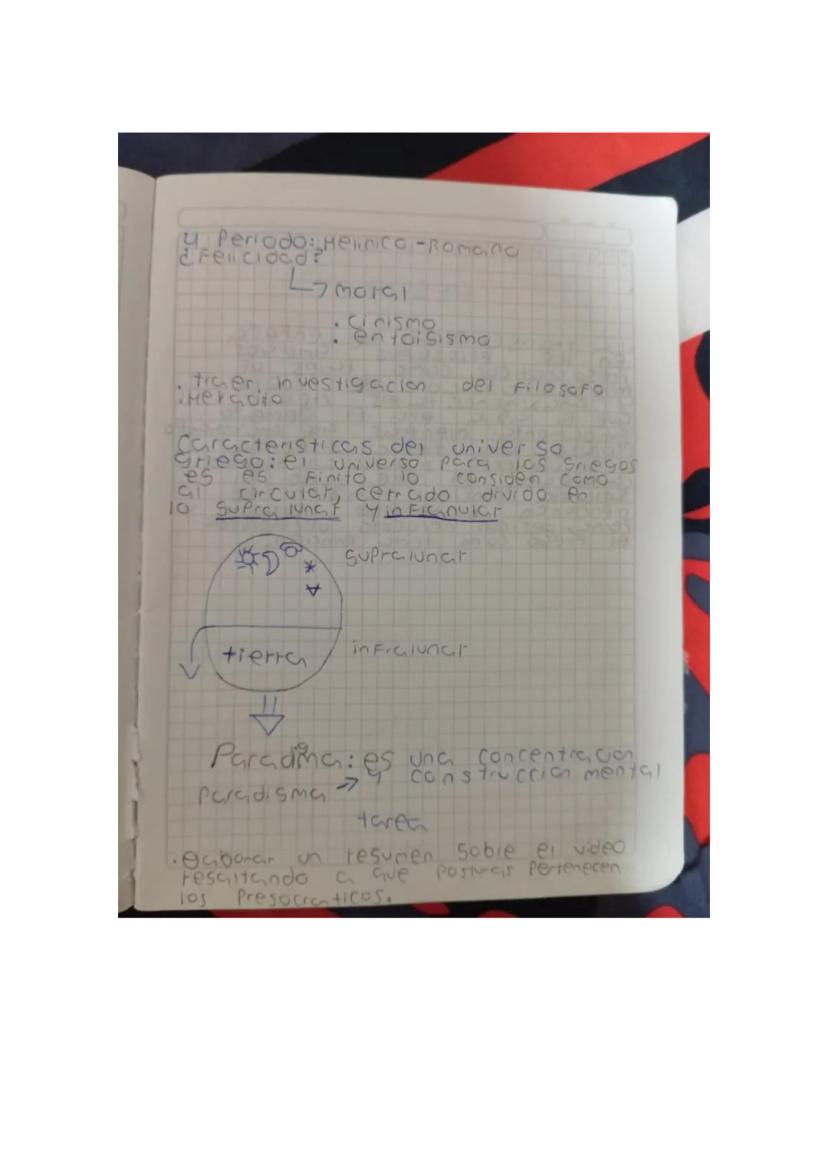 4 Periodo: Helinico-Romano
¿Felicidad?
moral
. cinismo
. entoisismo
. traer investigacion del Filosofo
:Heraclito
Caracteristicas del universo
griego: el universo para los griegos
es es finito lo considen como
al circular, cerrado divido en
lo supralunar y inflanular
supralunar
tierra
infralunar
Paradima: es una concentracion
y construccion mental
Paradisma
tarea
. eaborar un resumen sobre el video
resaltando a que posturas pertenecen
los presocraticos.